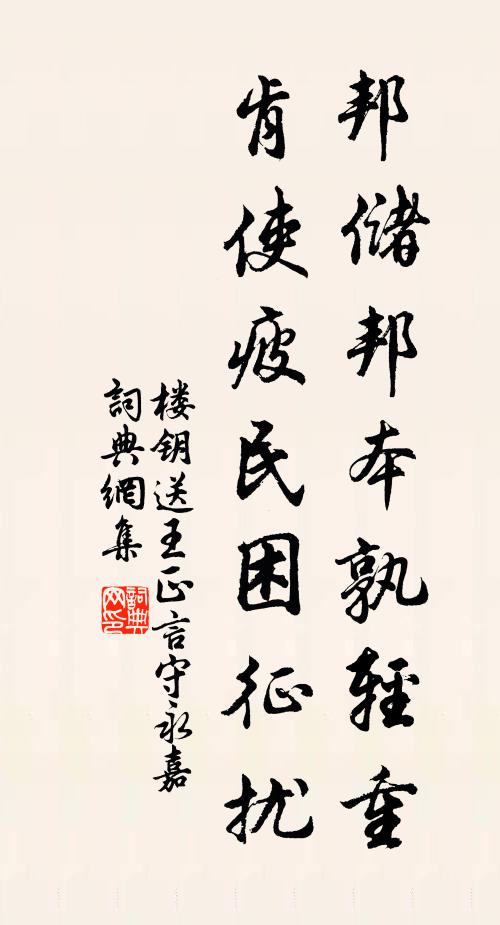 邦儲邦本孰輕重
肯使疲民困征扰
楼钥送王正言守永嘉
詞典網集
詞典网印